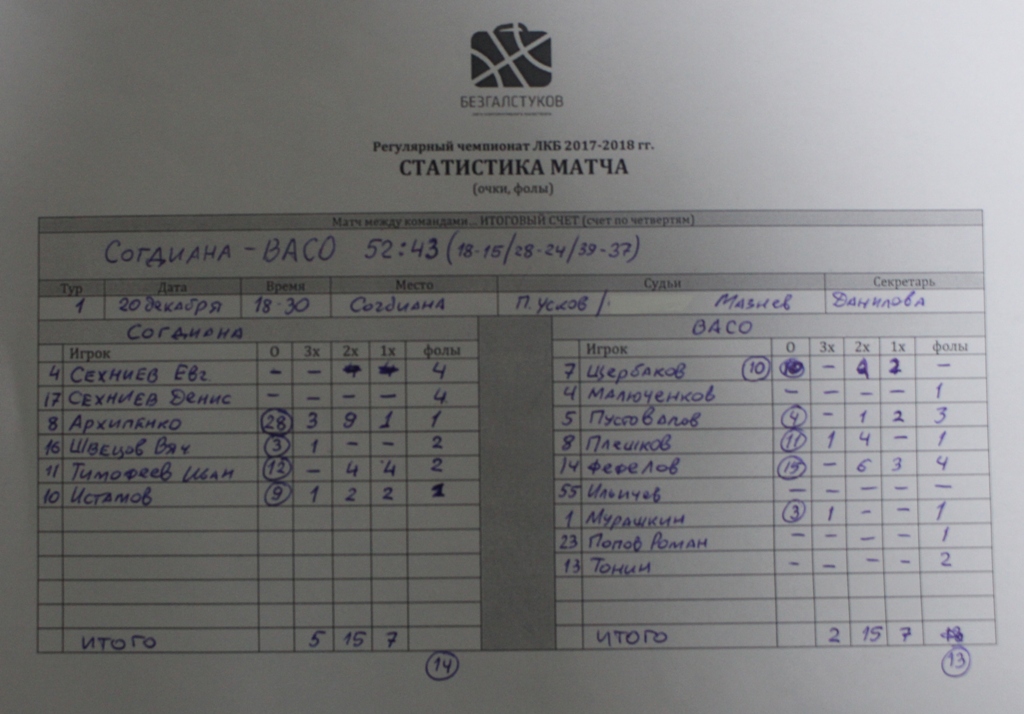 БЕЗГАЛСТУКОВ
Регулярный чемпионат ЛКБ 2017-2018 гг.
СТАТИСТИКА МАТЧА
(очки, фолы)
Матч между командами... ИТОГОВЫЙ СЧЕТ (счет по четвертям)
СОГДИАНА - ВАСО 52:43 (18-15/28-24/39-37)
Тур Дата Время Место Судьи Секретарь
1 20 декабря 18-30 Согдиана П. Усков / Мазнев Данилова
СОГДИАНА ВАСО
Игрок О 3х 2х 1х фолы Игрок О 3х 2х 1х фолы
4 СЕХНИЕВ ЕВГ. - - 4 7 Щербаков 10 - 2 -
17 СЕХНИЕВ ДЕНИС - - - - 4 4 МАЛЮЧЕНКОВ - - - - 1
8 АРХИПЕНКО 28 3 9 1 1 5 ПУСТОВАЛОВ 4 - 1 2 3
16 ШВЕЦОВ ВЯЧ 3 1 - - 2 8 ПЛЕШКОВ 11 1 4 - 1
11 ТИМОФЕЕВ ИВАН 12 - 4 4 2 14 ФЕФЕЛОВ 15 - 6 3 4
10 ИСТАМОВ 9 1 2 2 1 55 Ильичев - - - - -
1 МУРАШКИН 3 1 - - 1
23 ПОПОВ РОМАН - - - - 1
13 ТОНИН - - - - 2
ИТОГО 5 15 7 ИТОГО 2 15 7
14 13